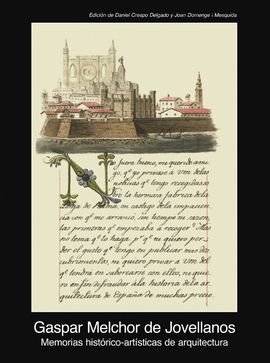 Edición de Daniel Crespo Delgado y Joan Domenge i Mesquida
No fuera bueno, mi querido ami-
go, qe yo privase á Vm. de las
noticias qe tengo recogidas so-
bre la hermosa fabrica de la
Lonja de Palma, en castigo de la impacien-
cia con qe me arrancó, sin tiempo ni sazon,
las primeras qe empezaba á recoger? Mas
no tema qe lo haga: yo qe ni quiero per-
der el gusto qe tengo en publicar mis des-
cubrimientos, ni quiero privar á Vm. del
qe tendrá en saborearse con ellos, ni quie-
ro en fin defraudar á la historia de la ar-
quitectura de España de muchas precio-
Gaspar Melchor de Jovellanos
Memorias histórico-artísticas de arquitectura